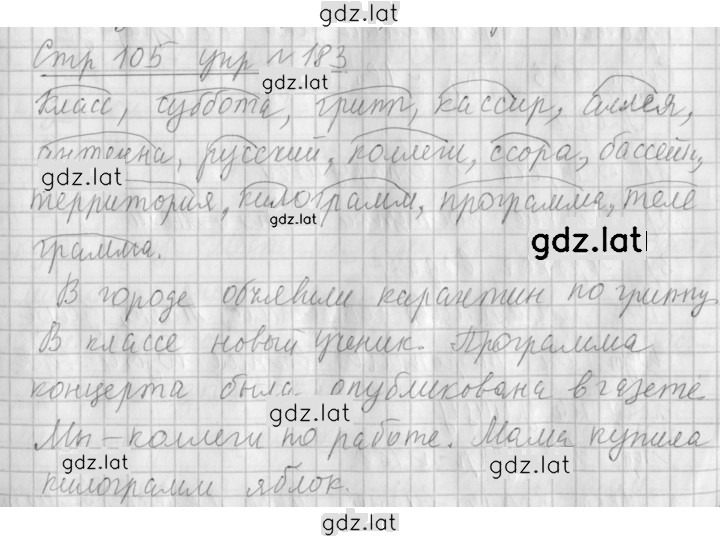 gdz.lat
Стр 105 упр № 183
gdz.lat
Класс, суббота, грипп, кассир, аллея,
антенна, русский, коллеги, ссора, бассейн,
gdz.lat
территория, килограмм, программа, теле
gdz.lat
грамма.
gdz.lat
В городе объявили карантин по гриппу
В классе новый ученик. Программа
концерта была опубликована в газете
gdz.lat
Мы - коллеги по работе. Мама купила
gdz.lat
gdz.lat
килограмм яблок.
gdz.lat